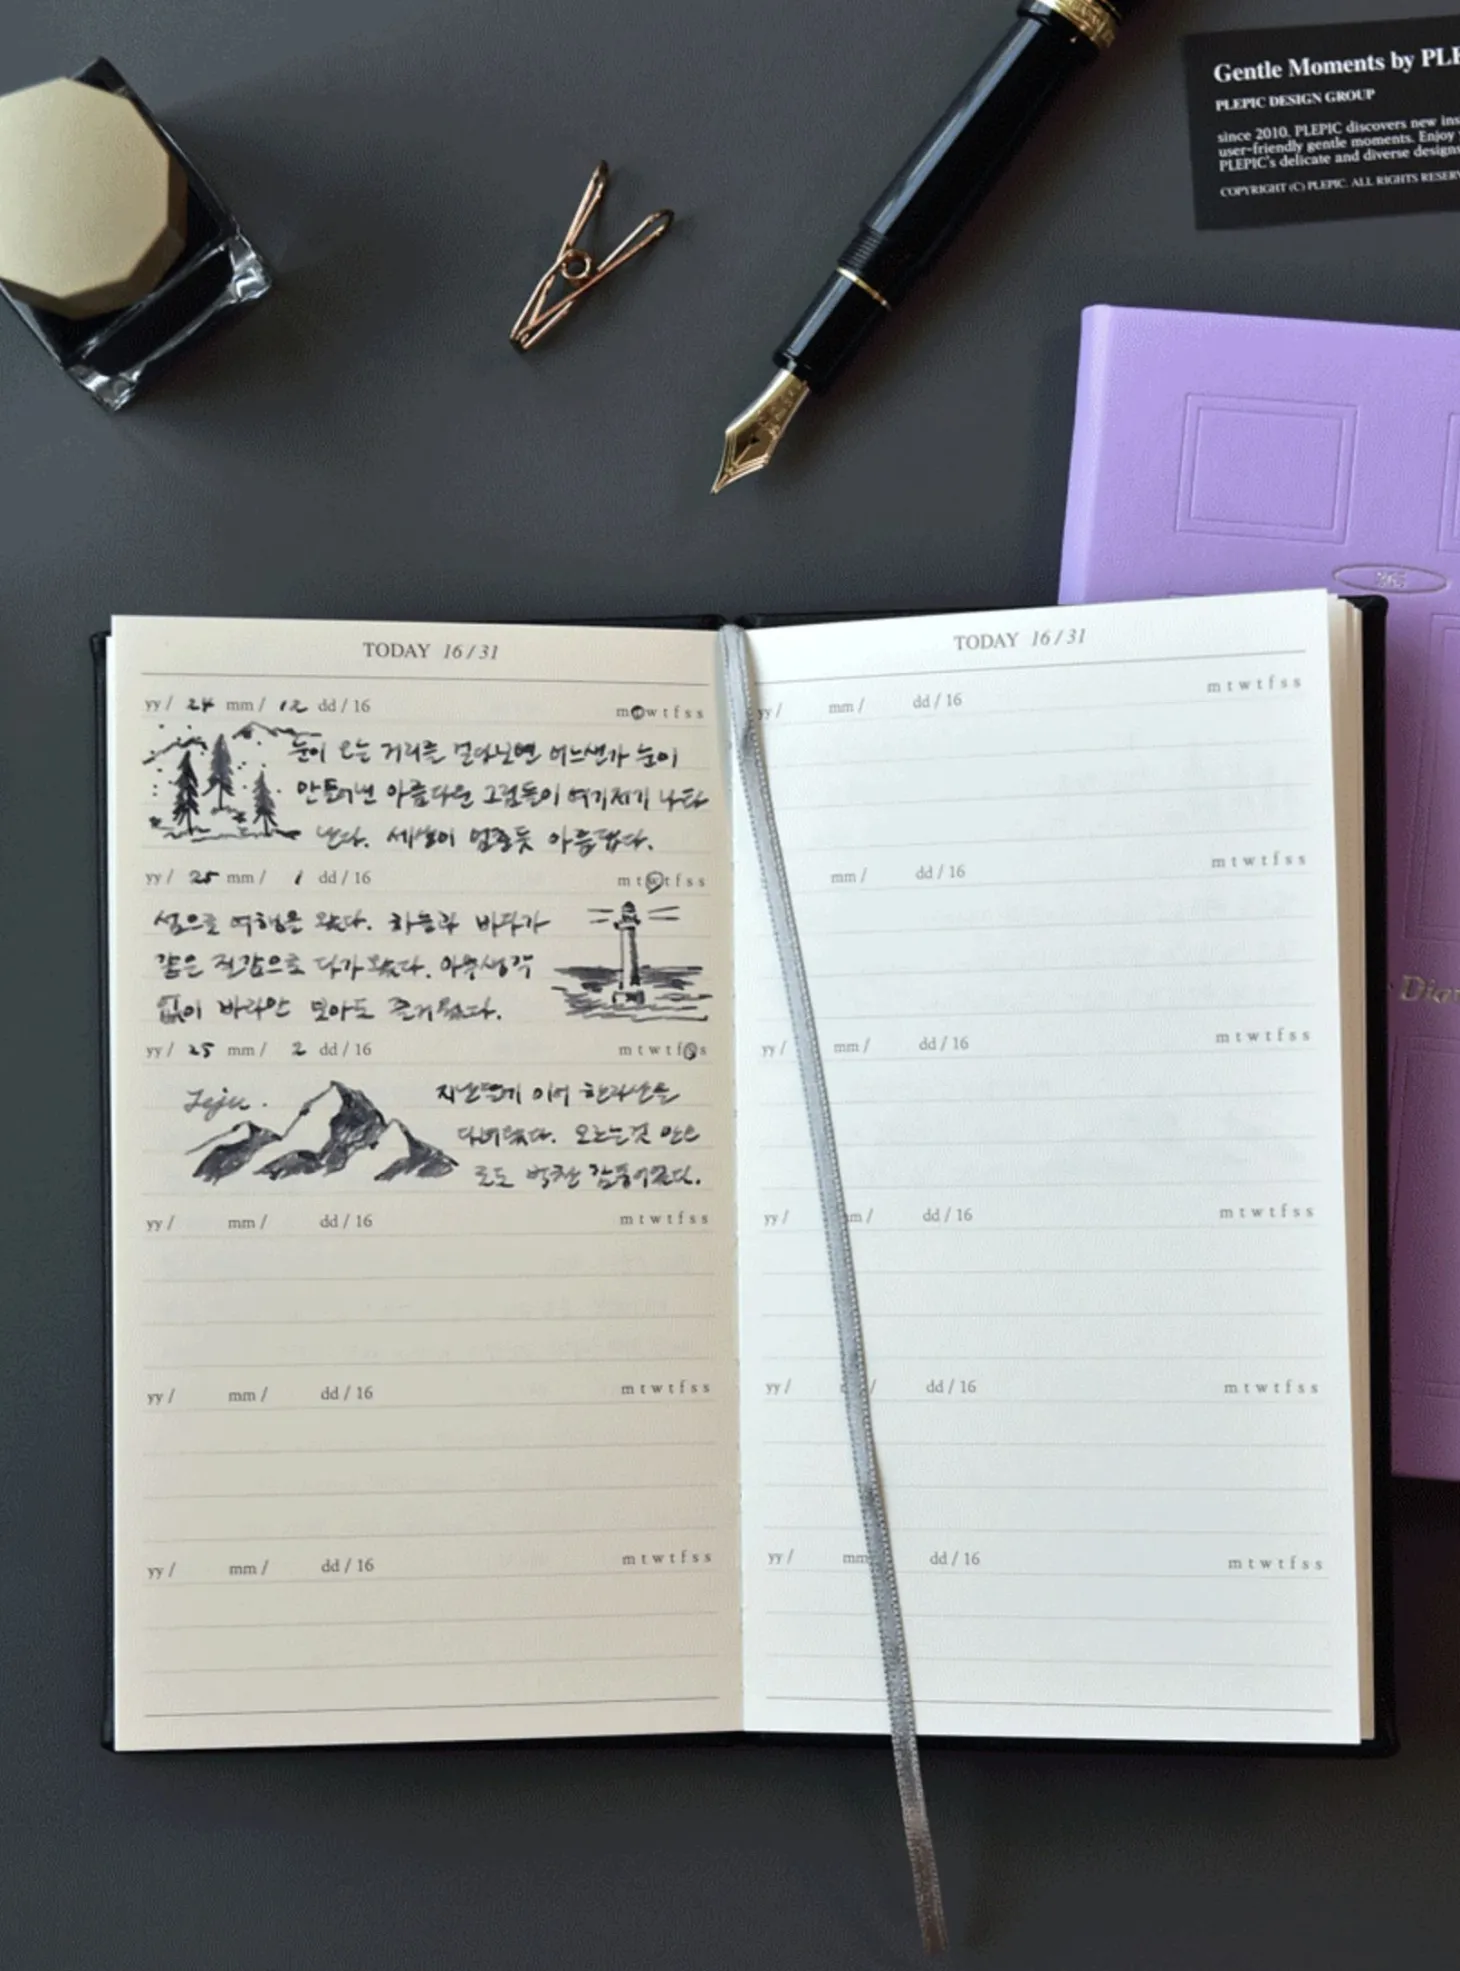 Gentle Moments by PLE
PLEPIC DESIGN GROUP
since 2010. PLEPIC discovers new ins
user-friendly gentle moments. Enjoy
PLEPIC's delicate and diverse designs
COPYRIGHT (C) PLEPIC. ALL RIGHTS RESERV
Diar
TODAY 16/31
yy / 24 mm / 12 dd / 16 m t w t f s s
눈이 오는 거리를 걷다보면 어느샌가 눈이
만들어낸 아름다운 그림들이 여기저기 나타
난다. 세상이 멈춘듯 아름답다.
yy / 25 mm / 1 dd / 16 m t w t f s s
섬으로 여행을 왔다. 하늘과 바다가
같은 질감으로 다가왔다. 아무생각
없이 바라만 보아도 즐거웠다.
yy / 25 mm / 2 dd / 16 m t w t f s s
Jeju.
지난달에 이어 한라산을
다녀왔다. 오르는것 만으
로도 벅찬 감동이었다.
yy / mm / dd / 16 m t w t f s s
yy / mm / dd / 16 m t w t f s s
yy / mm / dd / 16 m t w t f s s
TODAY 16/31
yy / mm / dd / 16 m t w t f s s
mm / dd / 16 m t w t f s s
yy / mm / dd / 16 m t w t f s s
yy / mm / dd / 16 m t w t f s s
yy / / dd / 16 m t w t f s s
yy / mm dd / 16 m t w t f s s